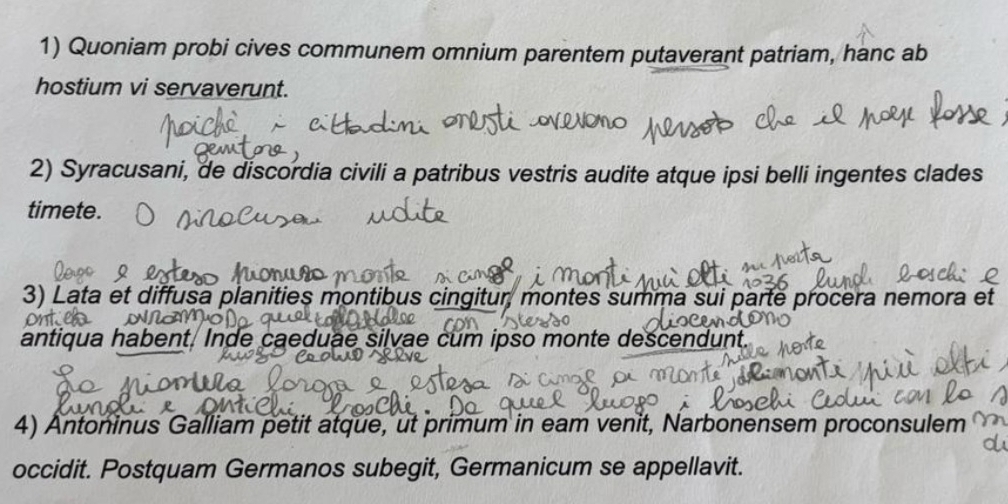 1) Quoniam probi cives communem omnium parentem putaverant patriam, hanc ab
hostium vi servaverunt.
poiché i cittadini onesti avevano pensato che il paese fosse
genitore,
2) Syracusani, de discordia civili a patribus vestris audite atque ipsi belli ingentes clades
timete. O siracusani udite
larga e estesa pianura monte si cinge i monti più alti parte lunghi boschi e
3) Lata et diffusa planities montibus cingitur, montes summa sui parte procera nemora et
antichi con stesso discendono
antiqua habent. Inde caeduae silvae cum ipso monte descendunt.
luogo ceduo selve nella parte
La pianura larga e estesa si cinge ai monti, dei monti più alti
lunghi e antichi boschi. Da quel luogo i boschi cedui con lo
4) Antoninus Galliam petit atque, ut primum in eam venit, Narbonensem proconsulem
occidit. Postquam Germanos subegit, Germanicum se appellavit.